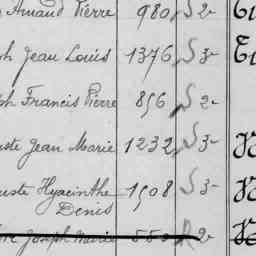 Amand Pierre 980 S 2
ph Jean Louis 1376 S 3
ph Francis Pierre 856 S 2
uste Jean Marie 1232 S 3
uste Hyacinthe 1508 S 3
Denis
Joseph Marie 550 R 2